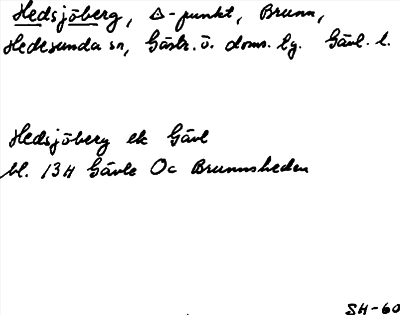 Hedsjöberg, Δ-punkt, Brunn,
Hedesunda sn, Gästr. ö. doms. tg. Gävl. l.
Hedsjöberg ek Gävl
bl. 13H Gävle Oc Brunnsheden
SH-60